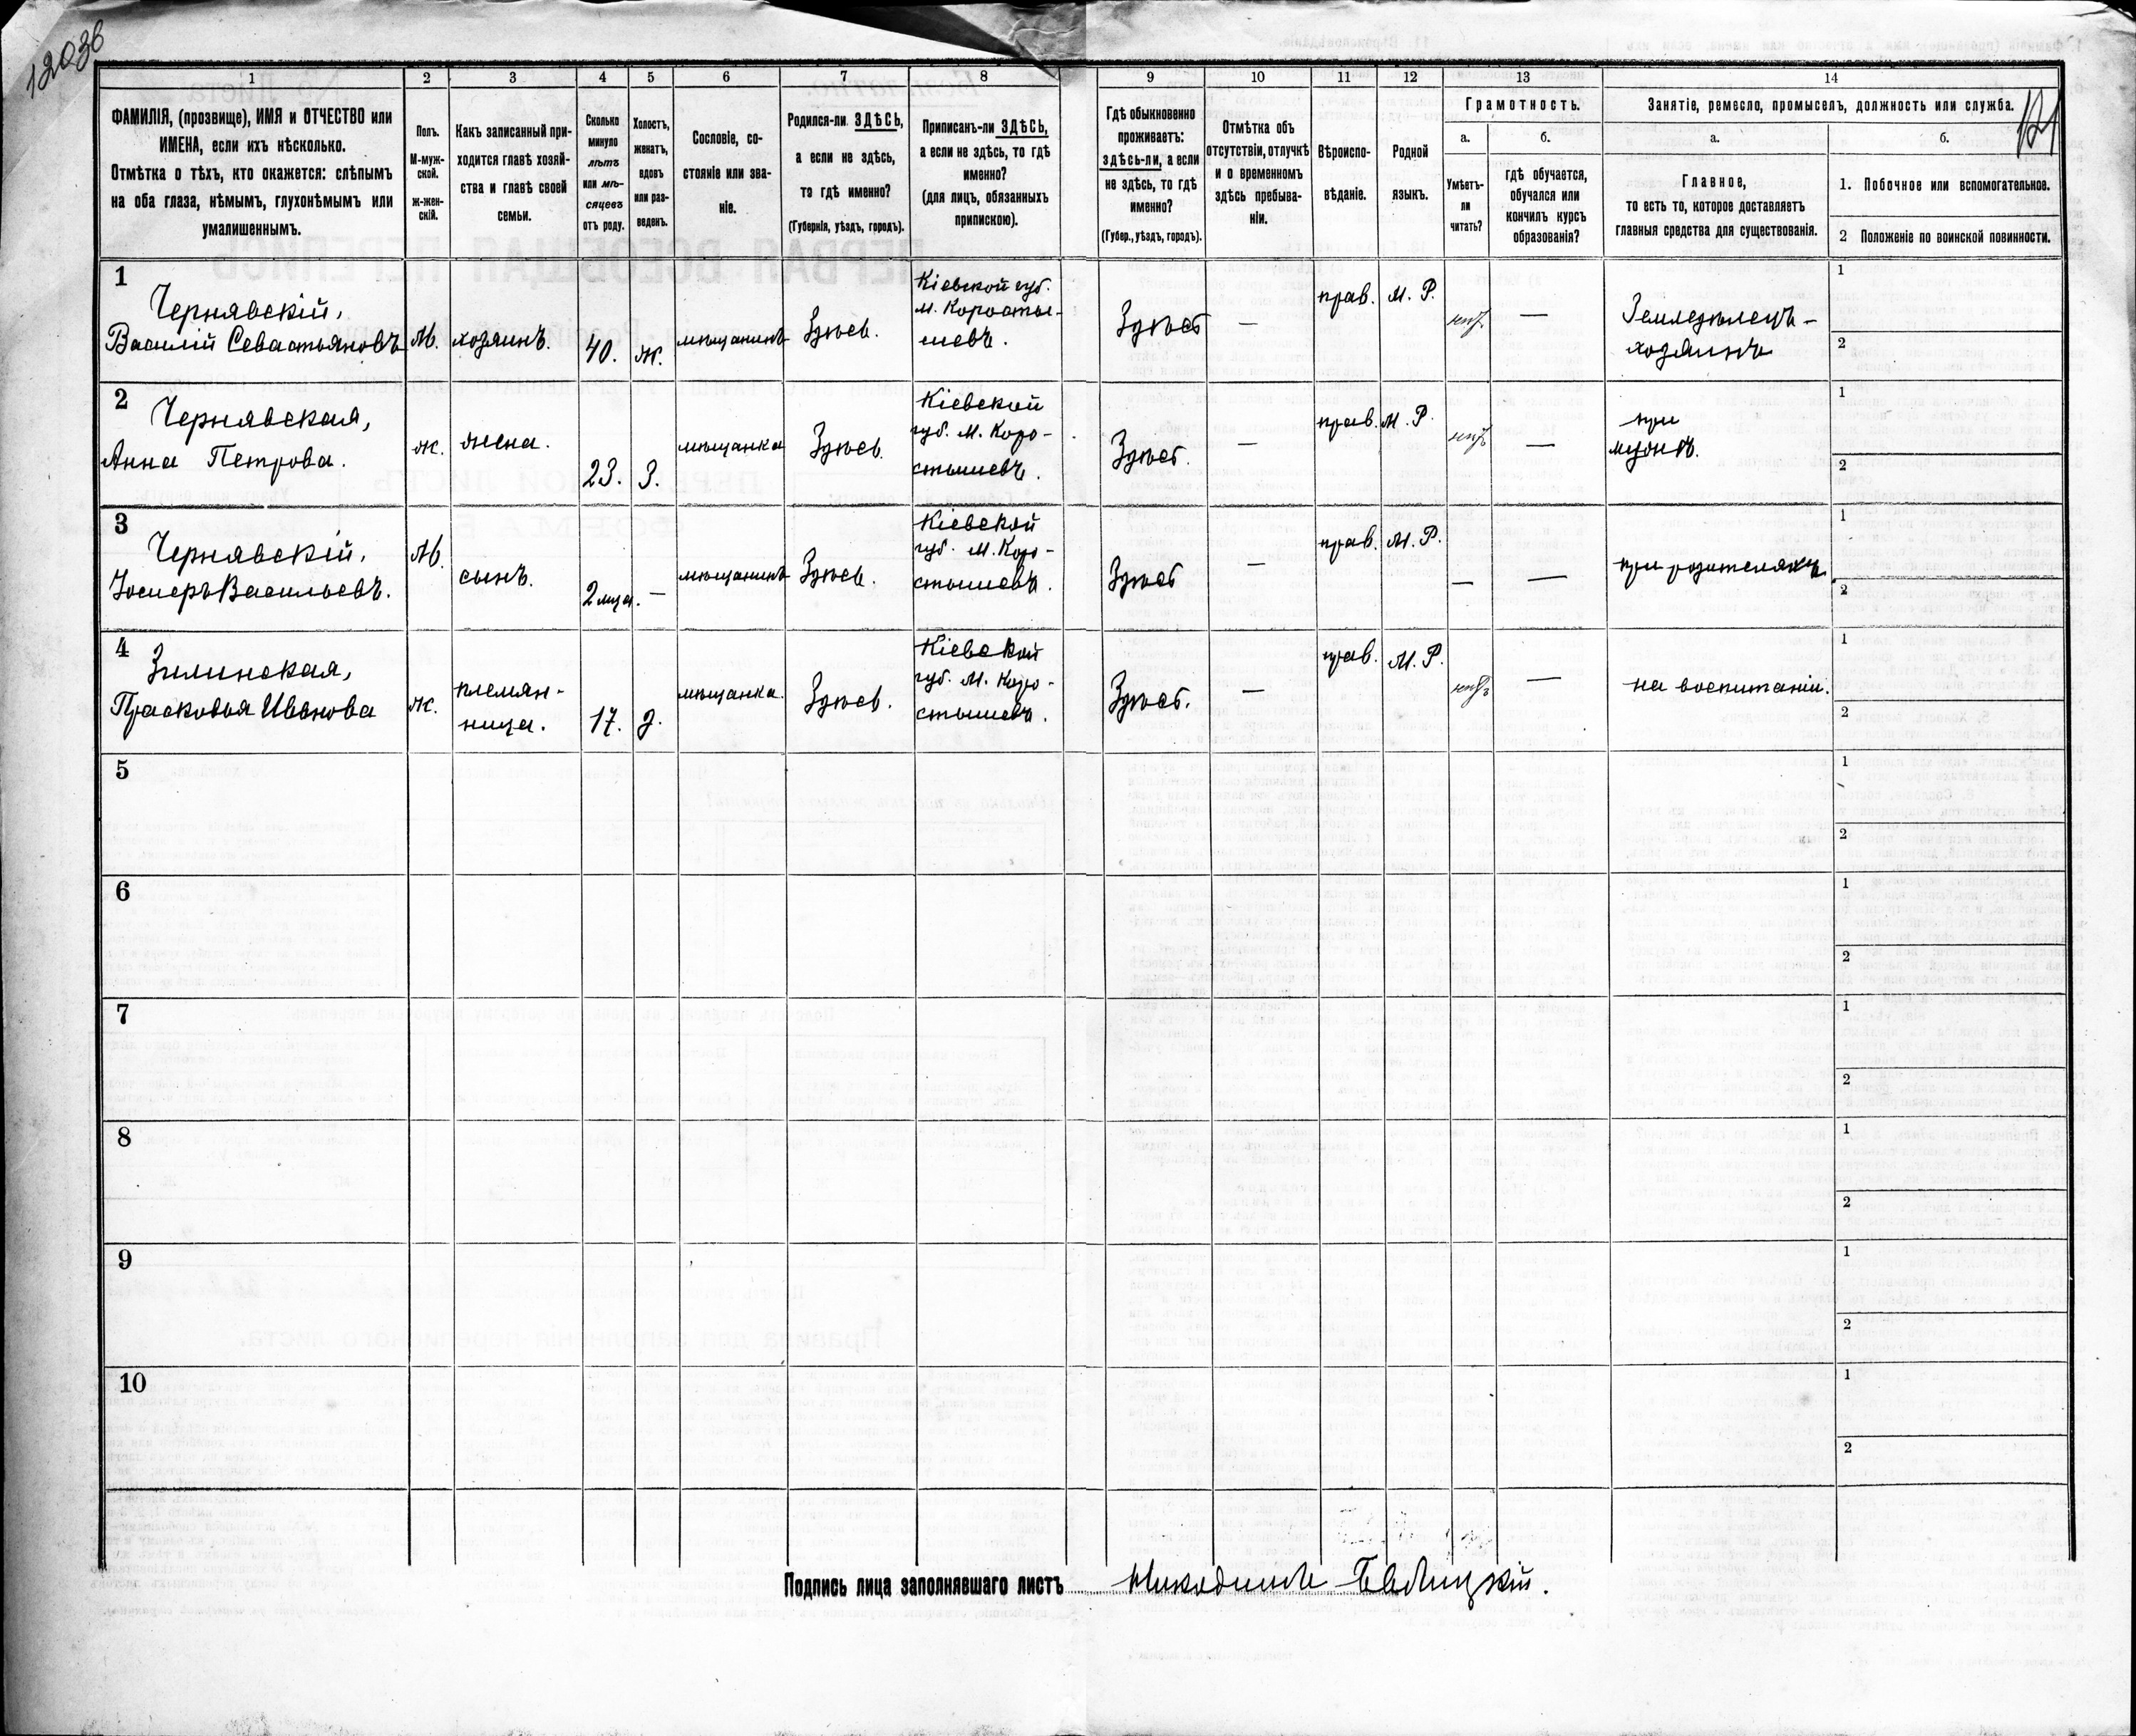 12036
121
1
2
3
4
5
6
7
8
9
10
11
12
13
14
ФАМИЛІЯ, (прозвище), ИМЯ и ОТЧЕСТВО или
ИМЕНА, если ихъ нѣсколько.
Отмѣтка о тѣхъ, кто окажется: слѣпымъ
на оба глаза, нѣмымъ, глухонѣмымъ или
умалишеннымъ.
Полъ.
М-муж-
ской.
ж-жен-
скій.
Какъ записанный при-
ходится главѣ хозяй-
ства и главѣ своей
семьи.
Сколько
минуло
лѣтъ
или мѣ-
сяцевъ
отъ роду.
Холостъ,
женатъ,
вдовъ
или раз-
веденъ.
Сословіе, со-
стояніе или зва-
ніе.
Родился-ли ЗДѢСЬ,
а если не здѣсь,
то гдѣ именно?
(Губернія, уѣздъ, городъ).
Приписанъ-ли ЗДѢСЬ,
а если не здѣсь, то гдѣ
именно?
(для лицъ, обязанныхъ
припискою).
Гдѣ обыкновенно
проживаетъ:
здѣсь-ли, а если
не здѣсь, то гдѣ
именно?
(Губер., уѣздъ, городъ).
Отмѣтка объ
отсутствіи, отлучкѣ
и о временномъ
здѣсь пребыва-
ніи.
Вѣроиспо-
вѣданіе.
Родной
языкъ.
Грамотность.
а.
Умѣетъ-
ли
читать?
б.
гдѣ обучается,
обучался или
кончилъ курсъ
образованія?
Занятіе, ремесло, промыселъ, должность или служба.
а.
Главное,
то есть то, которое доставляетъ
главныя средства для существованія.
б.
1. Побочное или вспомогательное.
2 Положеніе по воинской повинности.
1
Чернявскій,
Василій Севастьяновъ
М.
хозяинъ.
40.
ж.
мѣщанинъ
Здѣсь.
Кіевской губ.
м. Коросты-
шевъ.
Здѣсь
—
прав.
М. Р.
нѣтъ
—
Земледѣлецъ -
хозяинъ
1
2
2
Чернявская,
Анна Петрова.
ж.
жена.
23.
З.
мѣщанка
Здѣсь.
Кіевской
губ. М. Коро-
стышевъ.
Здѣсь.
—
прав.
М. Р.
нѣтъ
—
при
мужѣ.
1
2
3
Чернявскій,
Іосифъ Васильевъ.
М.
сынъ.
2 мца.
—
мѣщанинъ
Здѣсь.
Кіевской
губ. М. Коро-
стышевъ.
Здѣсь
—
прав.
М. Р.
—
—
при родителяхъ
1
2
4
Зилинская,
Прасковья Иванова
ж.
племян-
ница.
17.
д.
мѣщанка.
Здѣсь.
Кіевской
губ. М. Коро-
стышевъ.
Здѣсь.
—
прав.
М. Р.
нѣтъ
—
на воспитаніи.
1
2
5
1
2
6
1
2
7
1
2
8
1
2
9
1
2
10
1
2
Подпись лица заполнявшаго листъ Никодимъ